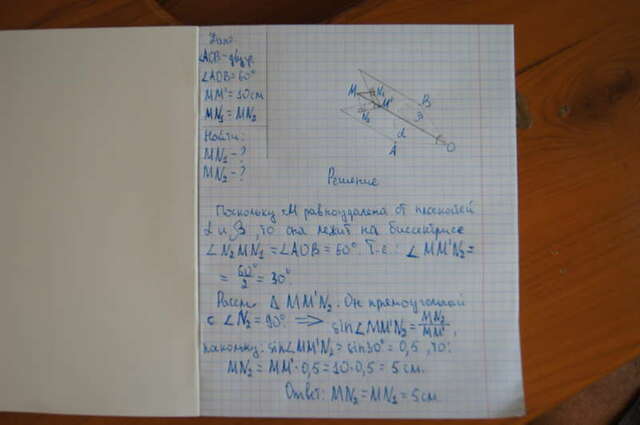 Дано
∠ACB - двугр.
∠AOB = 60°
MM' = 10см
MN₁ = MN₂
Найти:
MN₁ - ?
MN₂ - ?
M N₁ M' B
N₂ β
α
A O
Решение
Поскольку M равноудалена от плоскостей
α и β, то она лежит на биссектрисе
∠N₂MN₁ = ∠AOB = 60°. Т.е.: ∠MM'N₂ =
= 60°/2 = 30°
Рассм. Δ MM'N₂. Он прямоугольный
с ∠N₂ = 90° ⟹ sin∠MM'N₂ = MN₂/MM',
поскольку: sin∠MM'N₂ = sin30° = 0,5, то:
MN₂ = MM'·0,5 = 10·0,5 = 5 см.
Ответ: MN₂ = MN₁ = 5см